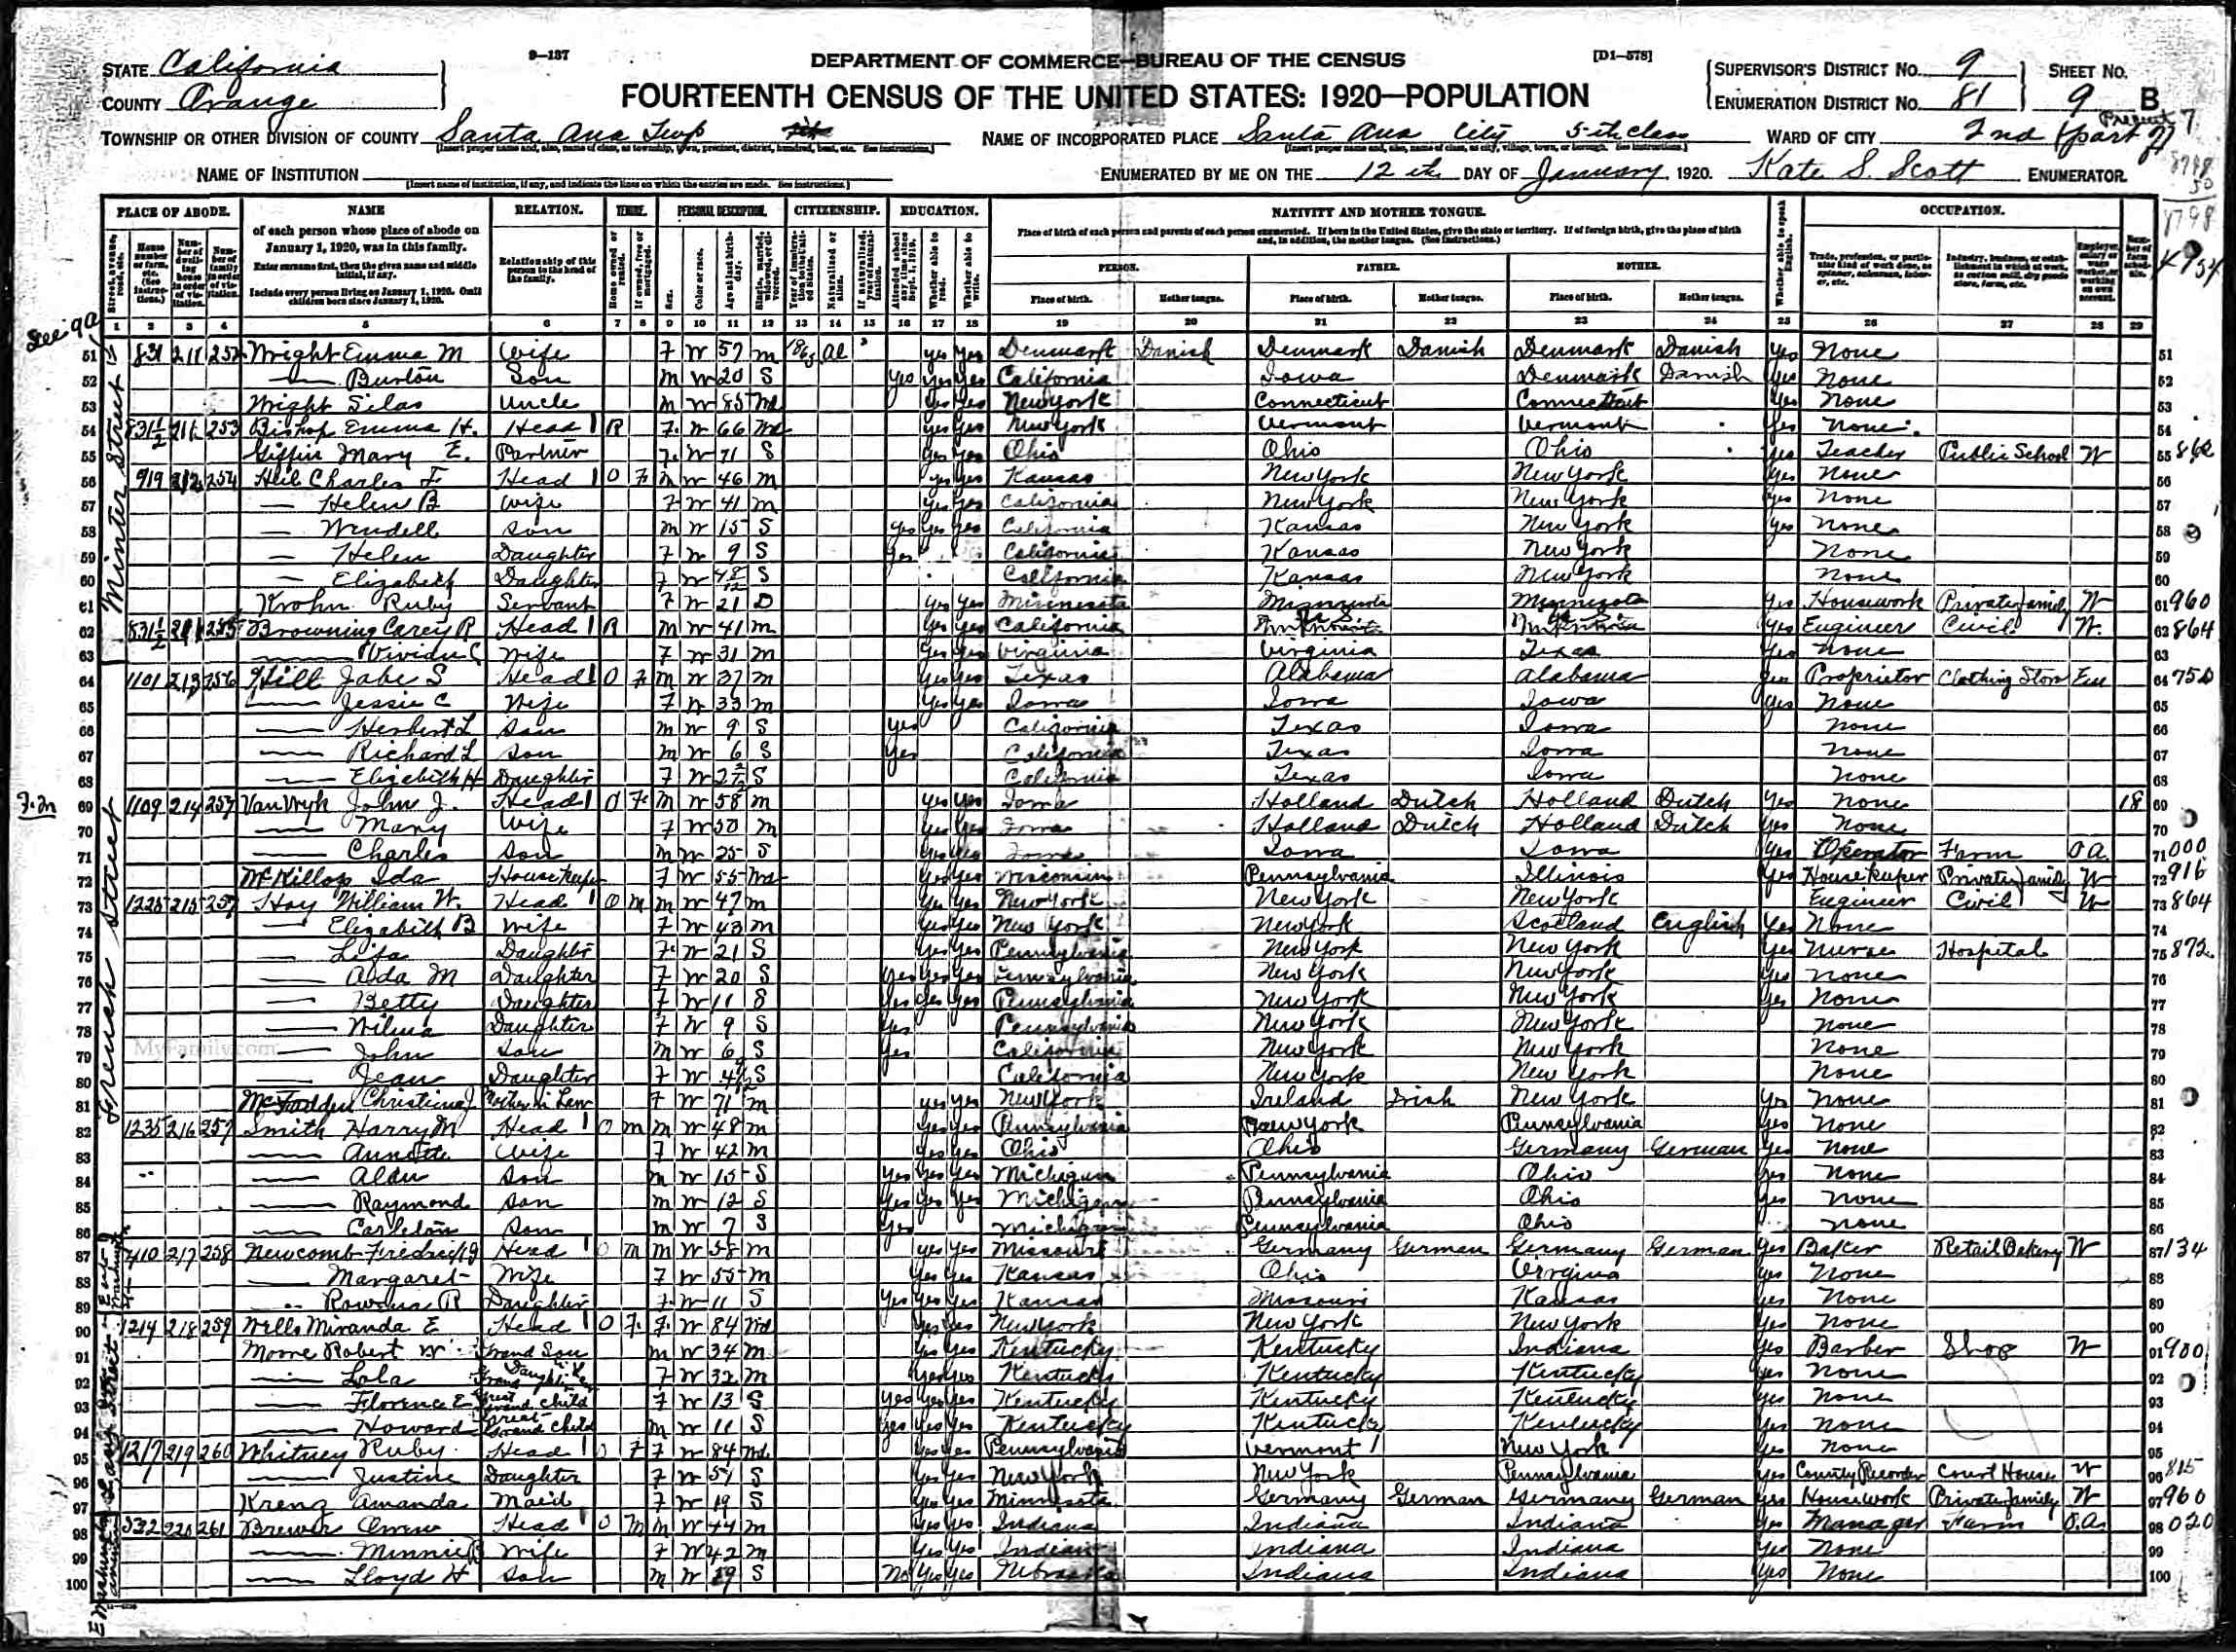 STATE California
9-137
DEPARTMENT OF COMMERCE—BUREAU OF THE CENSUS
[D1-578]
COUNTY Orange
FOURTEENTH CENSUS OF THE UNITED STATES: 1920—POPULATION
SUPERVISOR'S DISTRICT No. 9
SHEET No.
ENUMERATION DISTRICT No. 81
9 B
TOWNSHIP OR OTHER DIVISION OF COUNTY Santa Ana Twp
NAME OF INCORPORATED PLACE Santa Ana City 5th class
WARD OF CITY 2nd (part of) Precinct 7
NAME OF INSTITUTION
ENUMERATED BY ME ON THE 12th DAY OF January, 1920. Kate S. Scott ENUMERATOR.
PLACE OF ABODE. NAME RELATION. TENURE. PERSONAL DESCRIPTION. CITIZENSHIP. EDUCATION. NATIVITY AND MOTHER TONGUE. OCCUPATION.
of each person whose place of abode on January 1, 1920, was in this family.
Enter surname first, then the given name and middle initial, if any.
Include every person living on January 1, 1920. Omit children born since January 1, 1920.
Relationship of this person to the head of the family.
Place of birth of each person and parents of each person enumerated. If born in the United States, give the state or territory. If of foreign birth, give the place of birth and, in addition, the mother tongue. (See Instructions.)
PERSON. FATHER. MOTHER.
Place of birth. Mother tongue. Place of birth. Mother tongue. Place of birth. Mother tongue.
1 2 3 4 5 6 7 8 9 10 11 12 13 14 15 16 17 18 19 20 21 22 23 24 25 26 27 28 29
See 9A
Minter Street
51 831 211 252 Wright Emma M Wife F W 57 M Al yes yes Denmark Danish Denmark Danish Denmark Danish yes None 51
52 — Burton Son M W 20 S yes yes yes California Iowa Denmark Danish yes None 52
53 Wright Silas Uncle M W 85 Wd yes yes New York Connecticut Connecticut yes None 53
54 831½ 211 253 Bishop Emma H. Head 1 R F W 66 Wd yes yes New York Vermont Vermont yes None 54
55 Giffin Mary E. Partner F W 71 S yes yes Ohio Ohio Ohio yes Teacher Public School W 55 862
56 919 212 254 Heil Charles F Head 1 O F M W 46 M yes yes Kansas New York New York yes None 56
57 — Helen B Wife F W 41 M yes yes California New York New York yes None 57
58 — Wendell Son M W 15 S yes yes yes California Kansas New York yes None 58
59 — Helen Daughter F W 9 S yes California Kansas New York None 59
60 — Elizabeth Daughter F W 4 8/12 S California Kansas New York None 60
61 Krohn Ruby Servant F W 21 D yes yes Minnesota Minnesota Minnesota yes Housework Private family W 61 960
62 831½ 211 255 Browning Carey R Head 1 R M W 41 M yes yes California yes Engineer Civil W 62 864
63 — Vivian C Wife F W 31 M yes yes Virginia Virginia Texas yes None 63
64 1101 213 256 Hill Jabe S Head 1 O F M W 37 M yes yes Texas Alabama Alabama yes Proprietor Clothing Store Em 64 750
65 — Jessie C Wife F W 33 M yes yes Iowa Iowa Iowa yes None 65
66 — Herbert L Son M W 9 S yes California Texas Iowa None 66
67 — Richard L Son M W 6 S yes California Texas Iowa None 67
68 — Elizabeth H Daughter F W S California Texas Iowa None 68
French Street
69 1109 214 257 Van Wyk John J. Head 1 O F M W 58 M yes yes Iowa Holland Dutch Holland Dutch yes None 18 69
70 — Mary Wife F W 50 M yes yes Iowa Holland Dutch Holland Dutch yes None 70
71 — Charles Son M W 25 S yes yes Iowa Iowa Iowa yes Operator Farm OA 71 000
72 McKillop Ida Housekeeper F W 55 Wd yes yes Wisconsin Pennsylvania Illinois yes Housekeeper Private family W 72 916
73 1225 215 257 Hoy William W. Head 1 O M M W 47 M yes yes New York New York New York Engineer Civil W 73 864
74 — Elizabeth B Wife F W 43 M yes yes New York New York Scotland English yes None 74
75 — Daughter F W 21 S yes yes Pennsylvania New York New York yes Nurse Hospital 75 872
76 — Ada M Daughter F W 20 S yes yes yes Pennsylvania New York New York yes None 76
77 — Betty Daughter F W 11 S yes yes yes Pennsylvania New York New York yes None 77
78 — Wilma Daughter F W 9 S yes Pennsylvania New York New York None 78
79 — John Son M W 6 S yes California New York New York None 79
MyFamily.com
80 — Jean Daughter F W S California New York New York None 80
81 McFadden Christina J Mother in Law F W 71 M yes yes New York Ireland Irish New York yes None 81
82 1235 216 257 Smith Harry M Head 1 O M M W 48 M yes yes Pennsylvania New York Pennsylvania yes None 82
83 — Annette Wife F W 42 M yes yes Ohio Ohio Germany German yes None 83
84 — Alden Son M W 15 S yes yes yes Michigan Pennsylvania Ohio yes None 84
85 — Raymond Son M W 12 S yes yes yes Michigan Pennsylvania Ohio yes None 85
86 — Carleton Son M W 7 S yes Michigan Pennsylvania Ohio None 86
87 410 217 258 Newcomb Fredrick J Head 1 O M M W 58 M yes yes Missouri Germany German Germany German yes Baker Retail Bakery W 87 134
88 — Margaret Wife F W 55 M yes yes Kansas Ohio Virginia yes None 88
89 — Rowena R Daughter F W 11 S yes yes yes Kansas Missouri Kansas yes None 89
90 1214 218 259 Wells Miranda E Head 1 O F F W 84 Wd yes yes New York New York New York yes None 90
91 Moore Robert W Grand Son M W 34 M yes yes Kentucky Kentucky Indiana yes Barber Shop W 91 900
92 — Lola Grand Daughter in Law F W 32 M yes yes Kentucky Kentucky Kentucky yes None 92
93 — Florence E Great Grand child F W 13 S yes yes yes Kentucky Kentucky Kentucky yes None 93
94 — Howard Great Grand child M W 11 S yes yes yes Kentucky Kentucky Kentucky yes None 94
95 1217 219 260 Whitney Ruby Head 1 O F F W 84 Wd yes yes Pennsylvania Vermont New York yes None 95
96 — Justine Daughter F W 51 S yes yes New York New York Pennsylvania yes County Recorder Court House W 96 815
97 Kreng Amanda Maid F W 19 S yes yes Minnesota Germany German Germany German yes Housework Private family W 97 960
98 332 220 261 Brewer Owen Head 1 O M M W 44 M yes yes Indiana Indiana Indiana yes Manager Farm O.A. 98 020
99 — Minnie B Wife F W 42 M yes yes Indiana Indiana Indiana yes None 99
100 — Lloyd H Son M W 19 S No yes yes Nebraska Indiana Indiana yes None 100